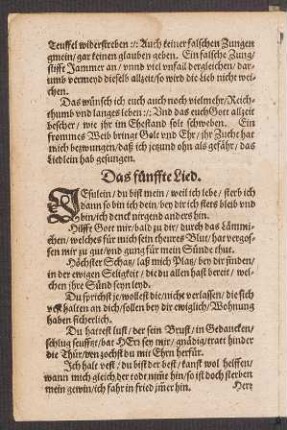 Teuffel widerstreben :/: Auch keiner falschen Zungen
gmein / gar keinen glauben geben. Ein falsche Zung /
stifft Jammer an / vnnd viel vnfail dergleichen / dar-
umb vermeyd dieselb allzeit / so wird die lieb nicht wei-
chen.
Das wünsch ich euch auch noch vielmehr / Reich-
thumb vnd langes leben :/: Vnd das euch Gott allzeit
bescher / wie jhr im Ehestand solt schweben. Ein
frommes Weib bringt Gole vnd Ehr / jhr Zucht hat
mich bezwungen / daß ich jetzund ohn als gefähr / das
liedlein hab gesungen.
Das fünffte Lied.
JEsulein / du bist mein / weil ich lebe / sterb ich
dann so bin ich dein / bey dir ich stets bleib vnd
bin / ich denck nirgend anders hin.
Hilfft Gott mir / bald zu dir / durch das Lämmi-
chen / welches für mich sein theures Blut / hat vergos-
sen mir zu gut / vnd gnung für mein Sünde thut.
Höchster Schatz / laß mich Platz / bey dir finden /
in der ewigen Seligkeit / die du allen hast bereit / wel-
chen jhre Sünd seyn leyd.
Du sprichst je / wollest die / nicht verlassen / die sich
vest halten an dich / sollen bey dir ewiglich / Wohnung
haben sicherlich.
Du hattest lust / der sein Brust / in Gedancken /
schlug seufftzt / bat HErr sey mir / gnädig / tratt hinder
die Thür / wen zochst du mit Ehrn herfür.
Ich halt vest / du bist der best / kanst wol helffen /
wann mich gleich der todt nimt hin / so ist doch sterben
mein gewin / ich fahr in fried jmer hin.
Herr